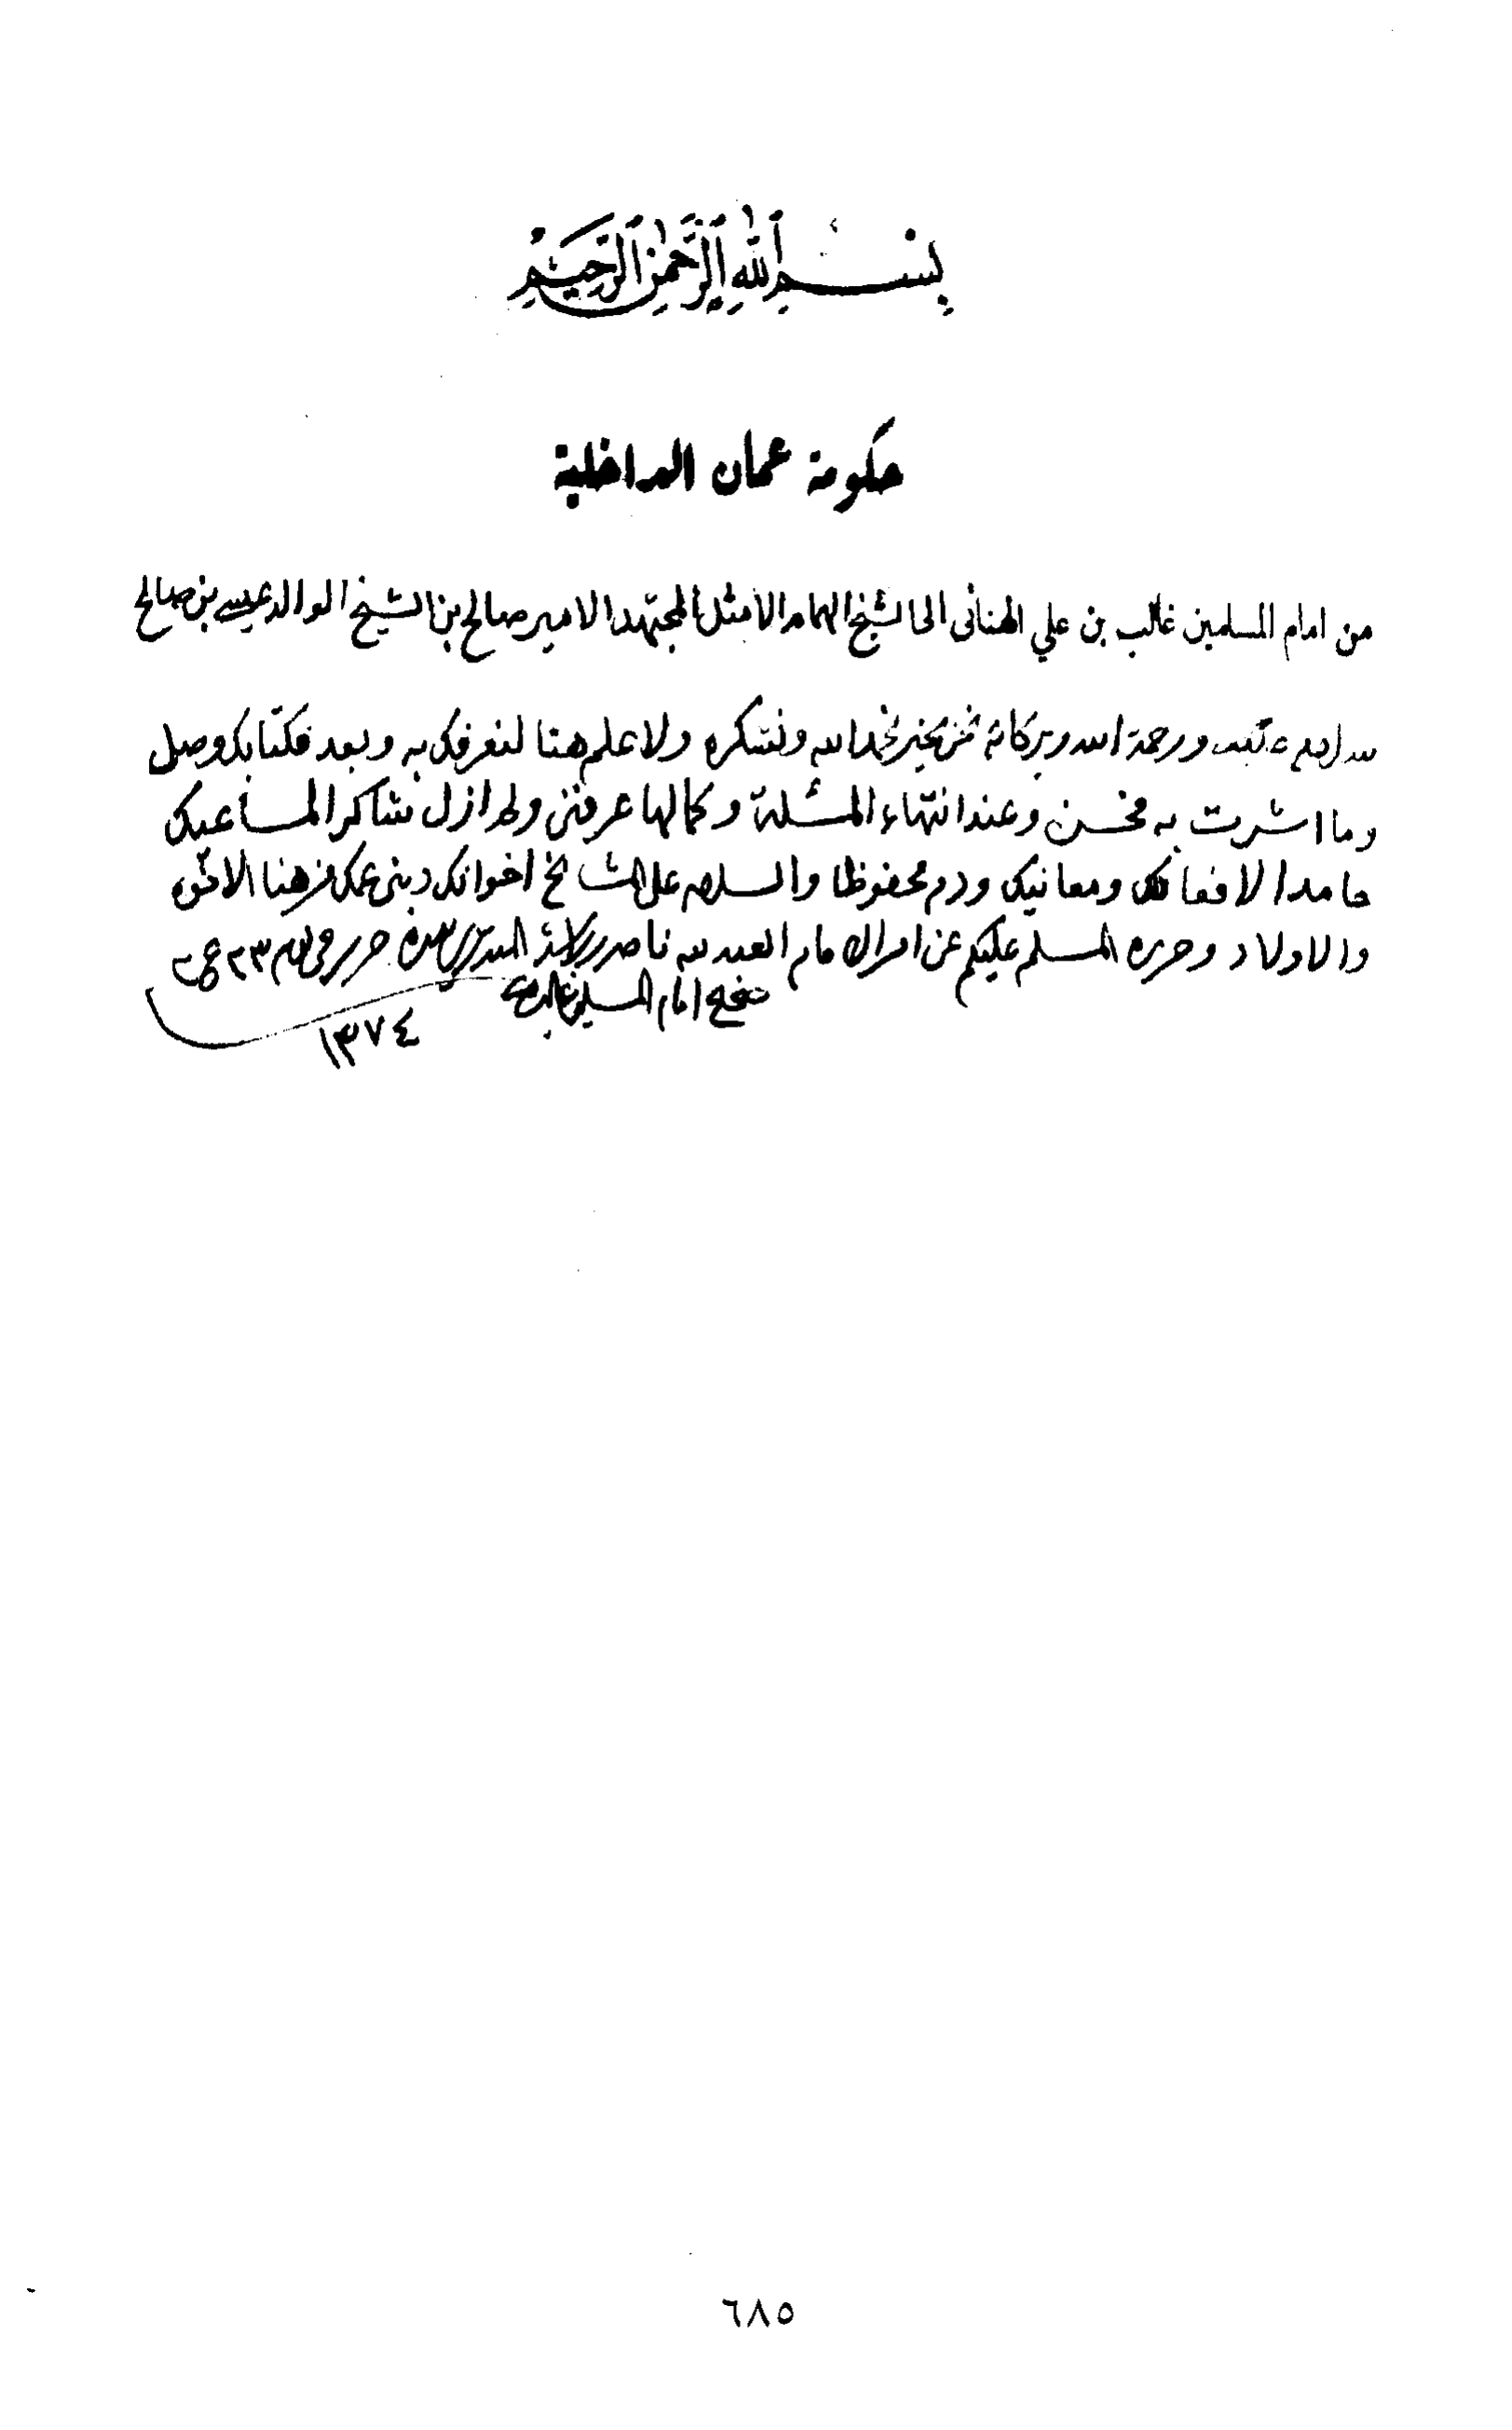 بسم الله الرحمن الرحيم
حكومة عمان الداخلية
من امام المسلمين غالب بن علي الهنائي الى الشيخ الهمام الامثل المجتهد الامير صالح بن الشيخ الوالد عيسى بن صالح
سلام عليك ورحمة الله وبركاته نحن بخير نحمد الله ونشكره ولا علم هنا لنعرفك به وبعد فكتابك وصل
وما اشرت به فحسن وعند انتهاء المسئلة وكمالها عرفني ولم ازل شاكرا لمساعيك
حامدا لافعالك ومعانيك ودم محفوظا والسلام على المشائخ اخوانك وبني عمك ومن هنا الاخوه
والاولاد وحرره المسلم عليكم عن امر الامام العبد لله ناصر بيده حرر في يوم ٢٣
صحيح امام المسلمين غالب بن علي
١٣٧٤
٦٨٥